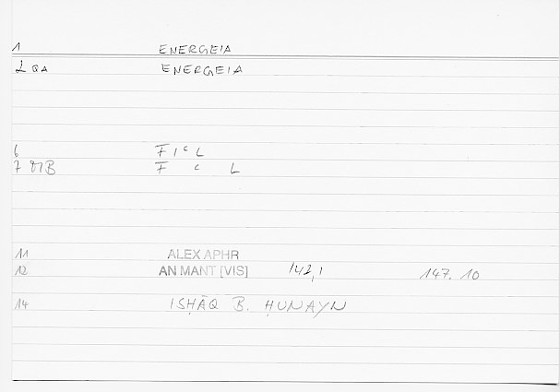 1 ENERGEIA
2 QA ENERGEIA
6 FIᶜL
7 F ᶜ L
11 ALEX APHR
12 AN MANT [VIS] 142,1 147.10
14 ISḤĀQ B. ḤUNAYN